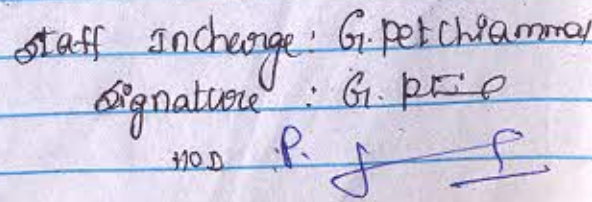 Staff Incharge: G. petchiammal
Signature : G.
HOD P.